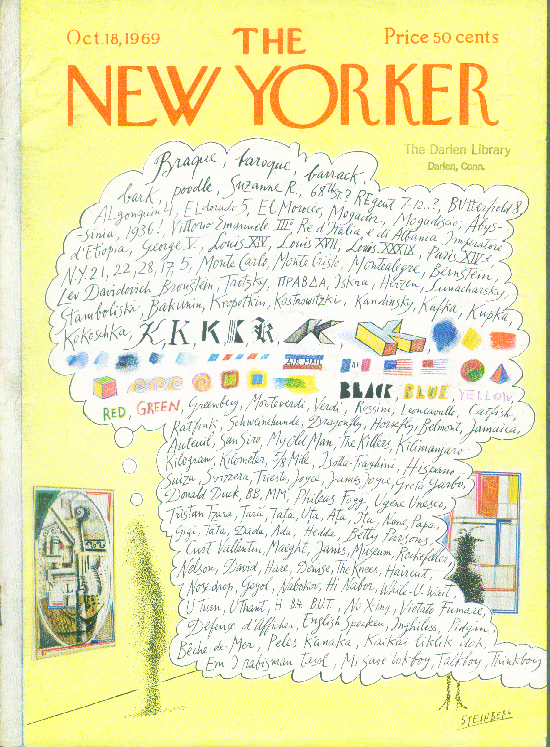 Oct.18,1969
THE
Price 50 cents
NEW YORKER
The Darien Library
Darien, Conn.
Braque, baroque, barrack,
bark, poodle, Suzanne R., 68th St? REgent 7-12..?, BUtterfield 8,
ALgonquin 4, ELdorado 5, El Morocco, Mogador, Mogadiscio, Abys-
sinia, 1936!, Vittorio Emanuele IIIº Re d'Italia e di Albania Imperatore
d'Etiopia, George V, Louis XIV, Louis XVII, Louis XXXIX, Paris XIVe
NY 21, 22, 28, 17, 5, Monte Carlo, Monte Cristo, Montealegre, Bernstein,
Lev Davidovich Bronstein, Trotsky, ПРАВДА, Iskra, Herzen, Lunacharsky,
Stamboliski, Bakunin, Kropotkin, Kostrowitzki, Kandinsky, Kafka, Kupka,
Kokoschka, K, K, K, K, K, K
AIR MAIL
BLACK, BLUE, YELLOW,
RED, GREEN, Greenberg, Monteverdi, Verdi, Rossini, Leoncavallo, Catfish,
Ratfink, Schweinehunde, Dragonfly, Horsefly, Belmont, Jamaica,
Auteuil, San Siro, My Old Man, The Killers, Kilimanjaro
Kilogram, Kilometer, 5/8 Mile, Isotta-Fraschini, Hispano
Suiza, Svizzera, Trieste, Joyce, James Joyce, Greta Garbo,
Donald Duck, BB, MM, Phileas Fogg, Ugène Unesco,
Tristan Tzara, Tara, Tata, Uta, Ata, Ita, Nana, Papa,
Gigi, Tata, Dada, Ada, Hedda, Betty Parsons,
Curt Valentin, Maeght, Janis, Museum, Rockefeller,
Nelson, David, Hare, Denise, The Knees, Haircut,
Nosedrop, Gogol, Nabokov, Hi Nabor, While-U-Wait
U Turn, U Thant, H B4 BUT, No Xing, Vietato Fumare,
Défense d'afficher, English Spoken, Inglilis, Pidgin,
Bêche-de-Mer, Peles Kanaka, Kaikai liklik dok,
Em I rabisman tasol, Mi save cokboy, Talkboy, Thinkboy
STEINBERG